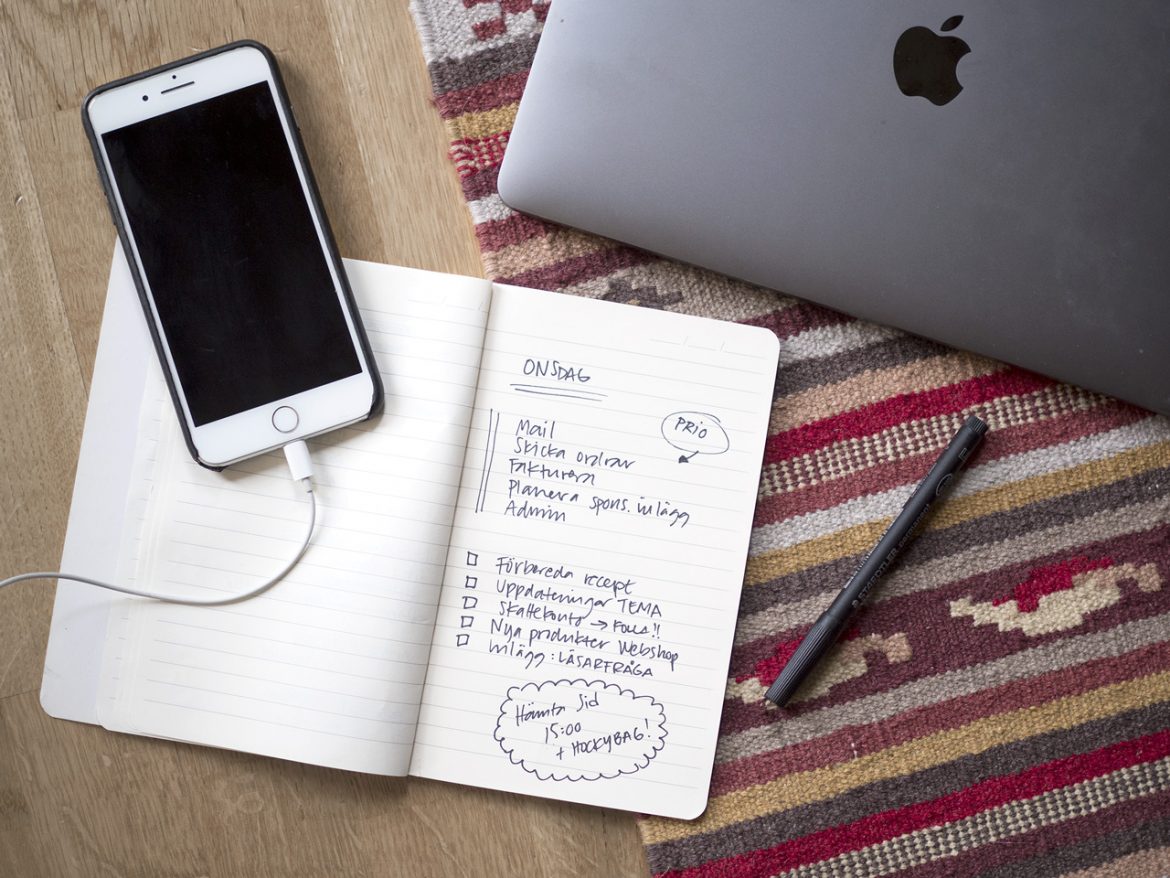 ONSDAG
PRIO
Mail
Skicka ordrar
Fakturera
Planera spons. inlägg
Admin
Förbereda recept
Uppdateringar TEMA
Skattekonto → KOLLA!!
Nya produkter Webshop
Inlägg: LÄSARFRÅGA
Hämta Sid
15:00
+ HOCKYBAG!
STAEDTLER permanent